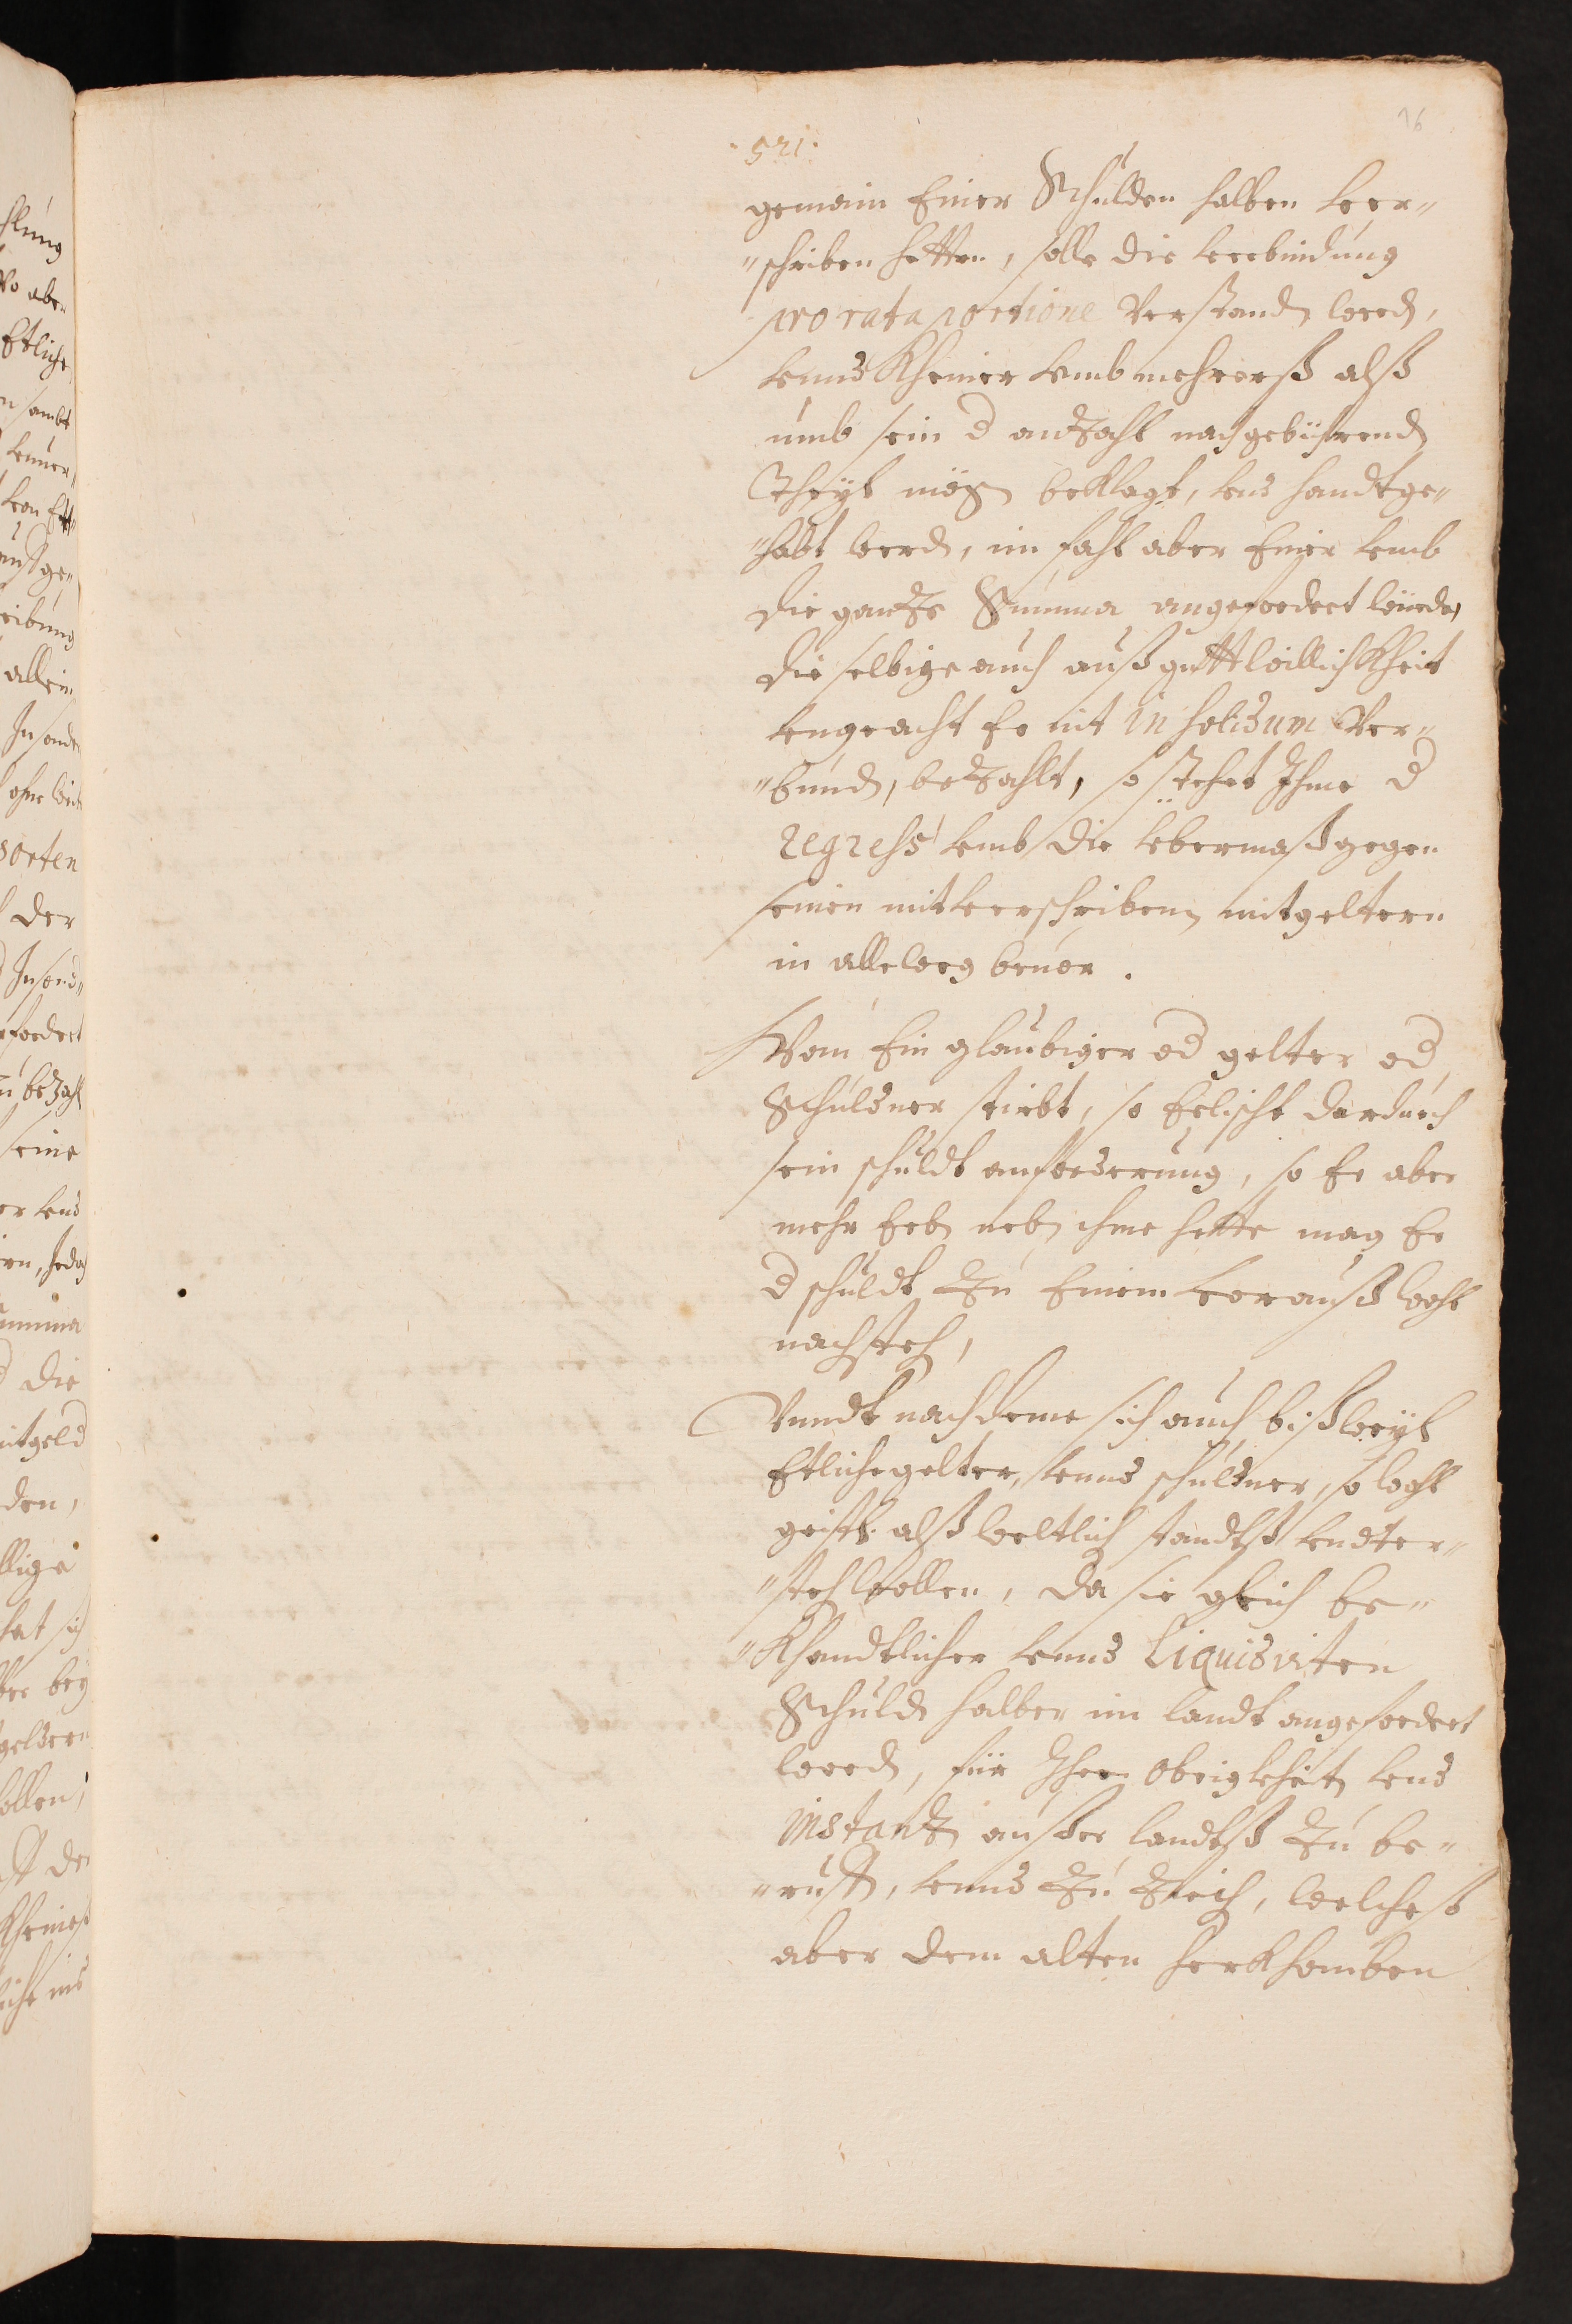 76
· 521 ·
gemain Einer Schulden halben ver„
„schriben hetten, solle die verbindung
pro rata portione verstandn werdn,
vnnd Kheiner vmb mehrerß alß
umb sein d antzahl nach gebührendn
Theyl mögn beklagt, vnd handtge„
„habt werdn, im fahl aber Einer vmb
die gantze Summa angefordert würde,
die selbige auch auß guttwillichkheit
vngeacht Er nit in solidum ver„
„bundn, bezahlt, so stehet Ihme d
regress vmb die vbermaß gegen
seinen mitverschribenen mitgeltern
in alleweg beuor.
Wan Ein glaubiger od gelter od
Schuldner stirbt, so Erlischt dardurch
sein schuldt anforderung, so Er aber
mehr Erbn nebn ihme hette mag Er
d schuldt zu Einem vorauß wohl
nachstehn,
Vnndt nachdeme sich auch bißweyl
Etliche gelter, vnnd schuldner, so wohl
geistl. alß weltlich standtß vndter„
„stehn wollen, da sie gleich be„
„khandtlicher vnnd Liquidirten
Schuldn halber im landt angefordert
werdn, für Ihre obrigkheit, vnd
instantz ausser landtß zu be„
„ruffn, vnnd zu ziehn, welcheß
aber dem alten herkhomben